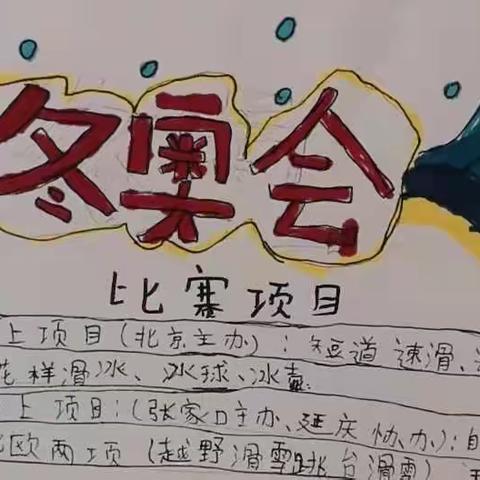 冬奥会
比赛项目
上项目(北京主办):短道速滑、
花样滑冰、冰球、冰壶.
上项目:(张家口主办、延庆协办):自
北欧两项(越野滑雪跳台滑雪)